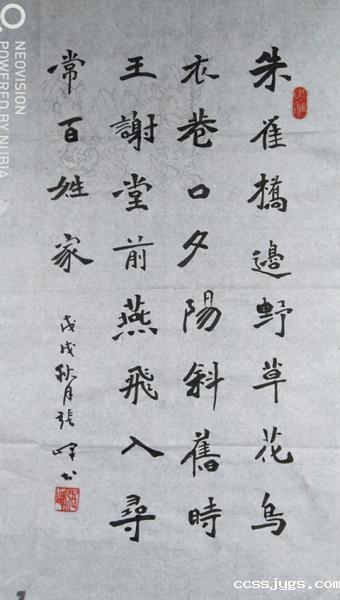 朱雀橋邊野草花烏
衣巷口夕陽斜舊時
王謝堂前燕飛入尋
常百姓家
戊戌秋月張峰书
NEOVISION
POWERED BY NUBIA
ccssjygs.com